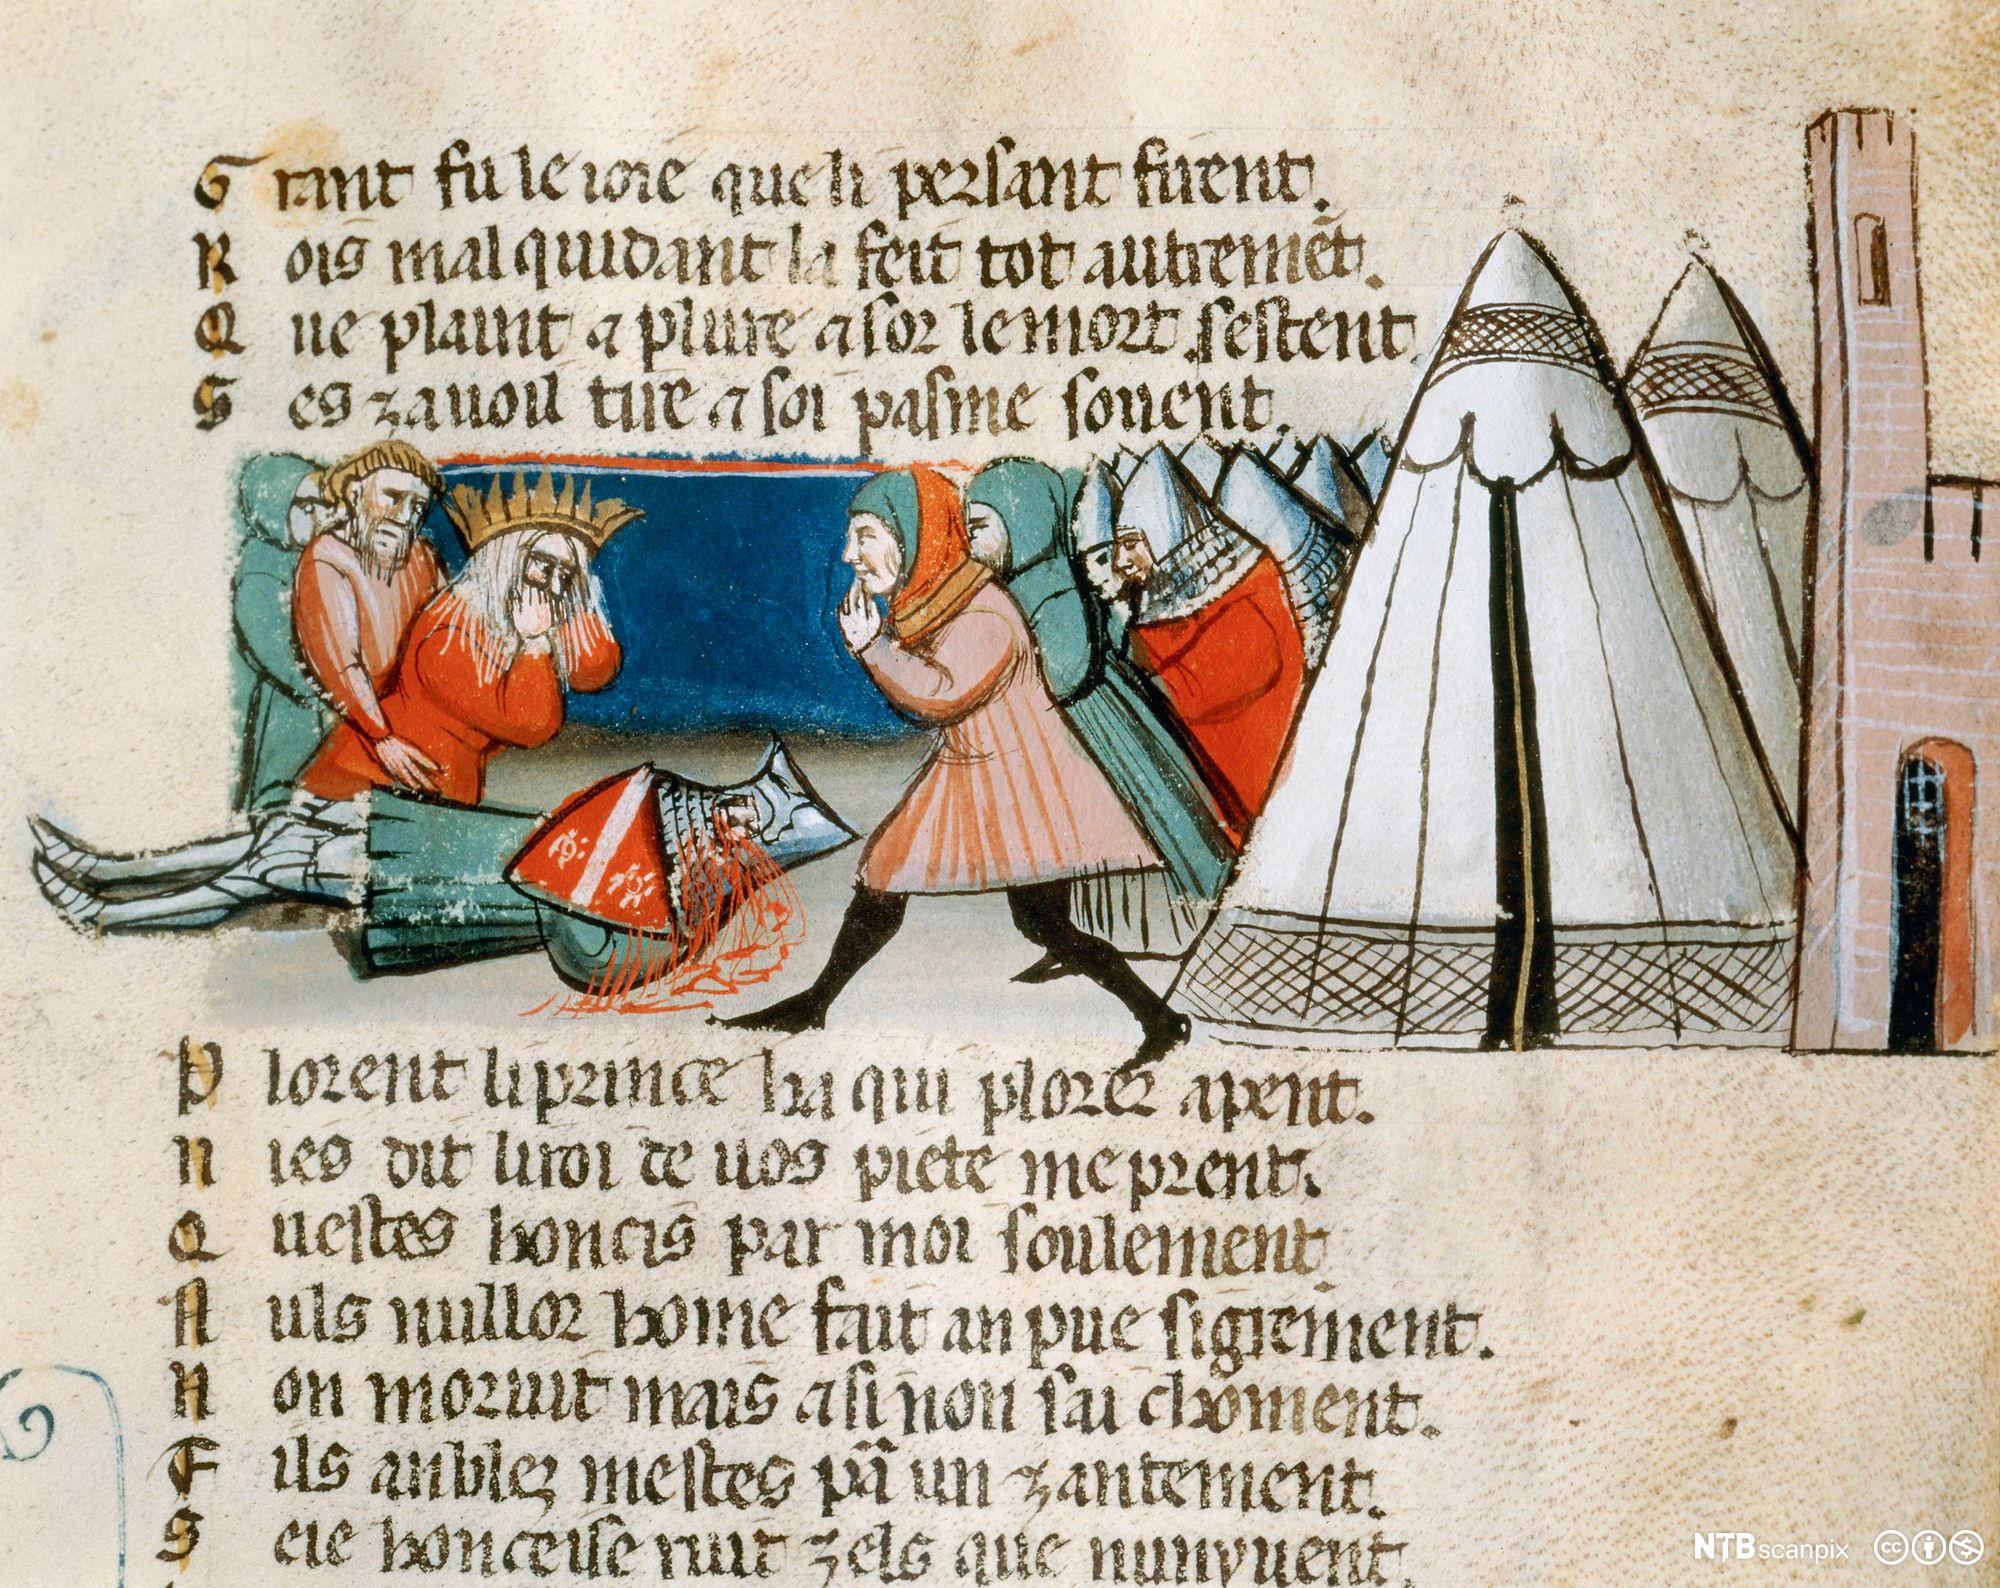 G rant fu le iore que li persant furent.
R ois malquidant la feit tot autremēt.
Q ue plaint ⁊ plure ⁊ sor le mort sestent.
S es zauoil tire ⁊ soi pasme souent.
P lorent li prince ha qui plorer apent.
N ies dit li roi de uos piete me prent.
Q uestes honcis par moi soulement
A uls nullor home fait an pue sigrement.
N on moruit mais ⁊ si non sai choment.
F ils anblez mestes pā un zantement.
S eie honceise ruit zels que nunyuent.
NTB scanpix cc